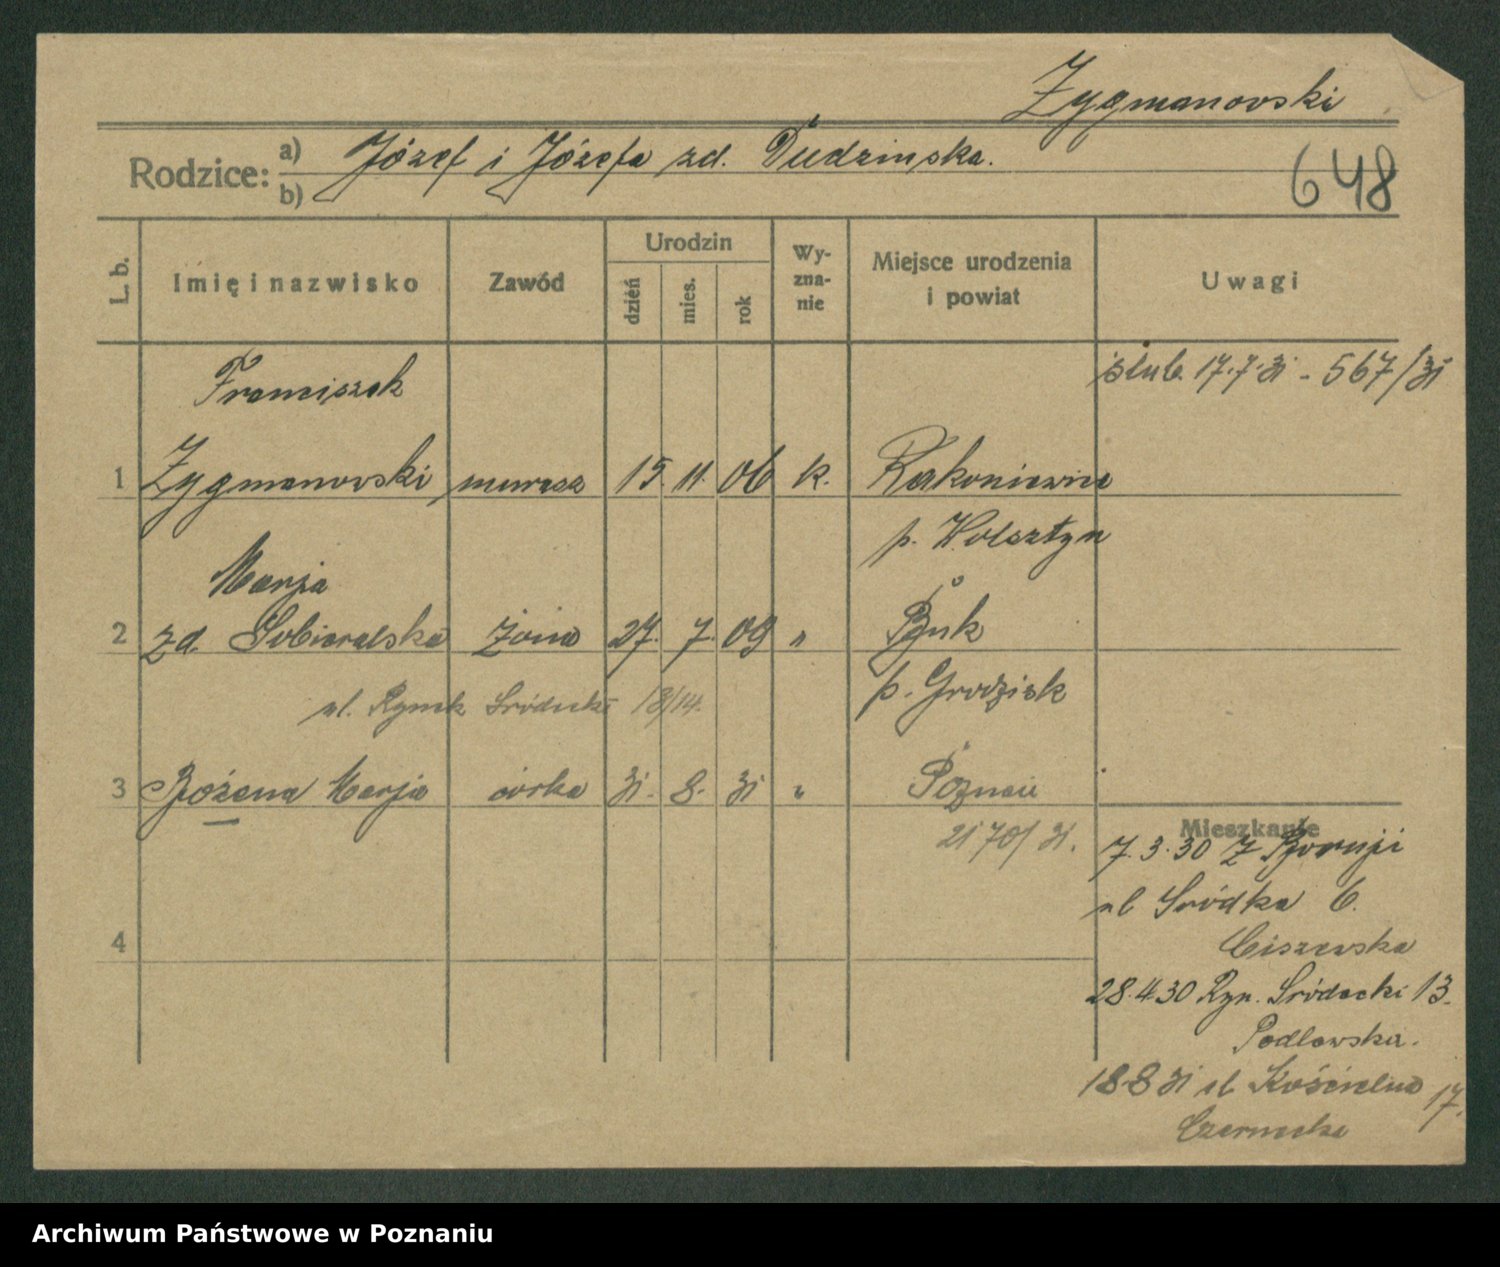 Zygmanovski
Rodzice: a) Józef i Józefa zd. Dudzinska.
b)
648
L. b.
Imię i nazwisko
Zawód
Urodzin
dzień
mies.
rok
Wy-
zna-
nie
Miejsce urodzenia
i powiat
Uwagi
Franciszek
ślub. 17.7.31 - 567/31
1 Zygmanovski murarz 15. 11. 06 k. Rakoniewice
p. Wolsztyn
Marja
2 zd. Sobieralska żona 27. 7. 09 " Buk
p. Grodzisk
ul. Rynek Śródecki 13/14.
3 Bożena Marja córka 31. 8. 31 " Poznań
2170/31.
4
Mieszkanie
7.3.30 Z Boruji
ul Śródka 6.
Ciszewska
28.4.30 Ryn. Śródecki 13.
Podlowska.
18.8 31 ul Kościelna 17.
Czarnecka
Archiwum Państwowe w Poznaniu